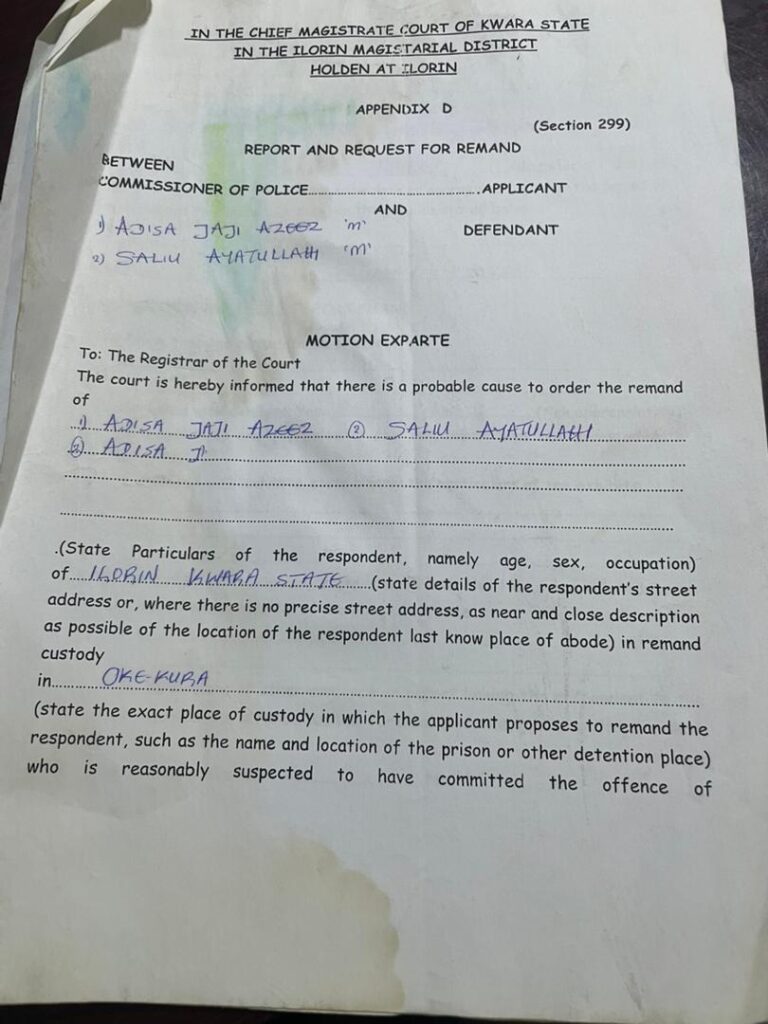 IN THE CHIEF MAGISTRATE COURT OF KWARA STATE
IN THE ILORIN MAGISTARIAL DISTRICT
HOLDEN AT ILORIN
APPENDIX D
(Section 299)
REPORT AND REQUEST FOR REMAND
BETWEEN
COMMISSIONER OF POLICE..............................................APPLICANT
AND
1) ADISA JAJI AZEEZ 'm'
DEFENDANT
2) SALIU AYATULLAHI 'm'
MOTION EXPARTE
To: The Registrar of the Court
The court is hereby informed that there is a probable cause to order the remand
of
1) ADISA JAJI AZEEZ (2) SALIU AYATULLAHI
(2) ADISA J
.(State Particulars of the respondent, namely age, sex, occupation)
of....ILORIN KWARA STATE......(state details of the respondent's street
address or, where there is no precise street address, as near and close description
as possible of the location of the respondent last know place of abode) in remand
custody
in..........OKE-KURA..........
(state the exact place of custody in which the applicant proposes to remand the
respondent, such as the name and location of the prison or other detention place)
who is reasonably suspected to have committed the offence of